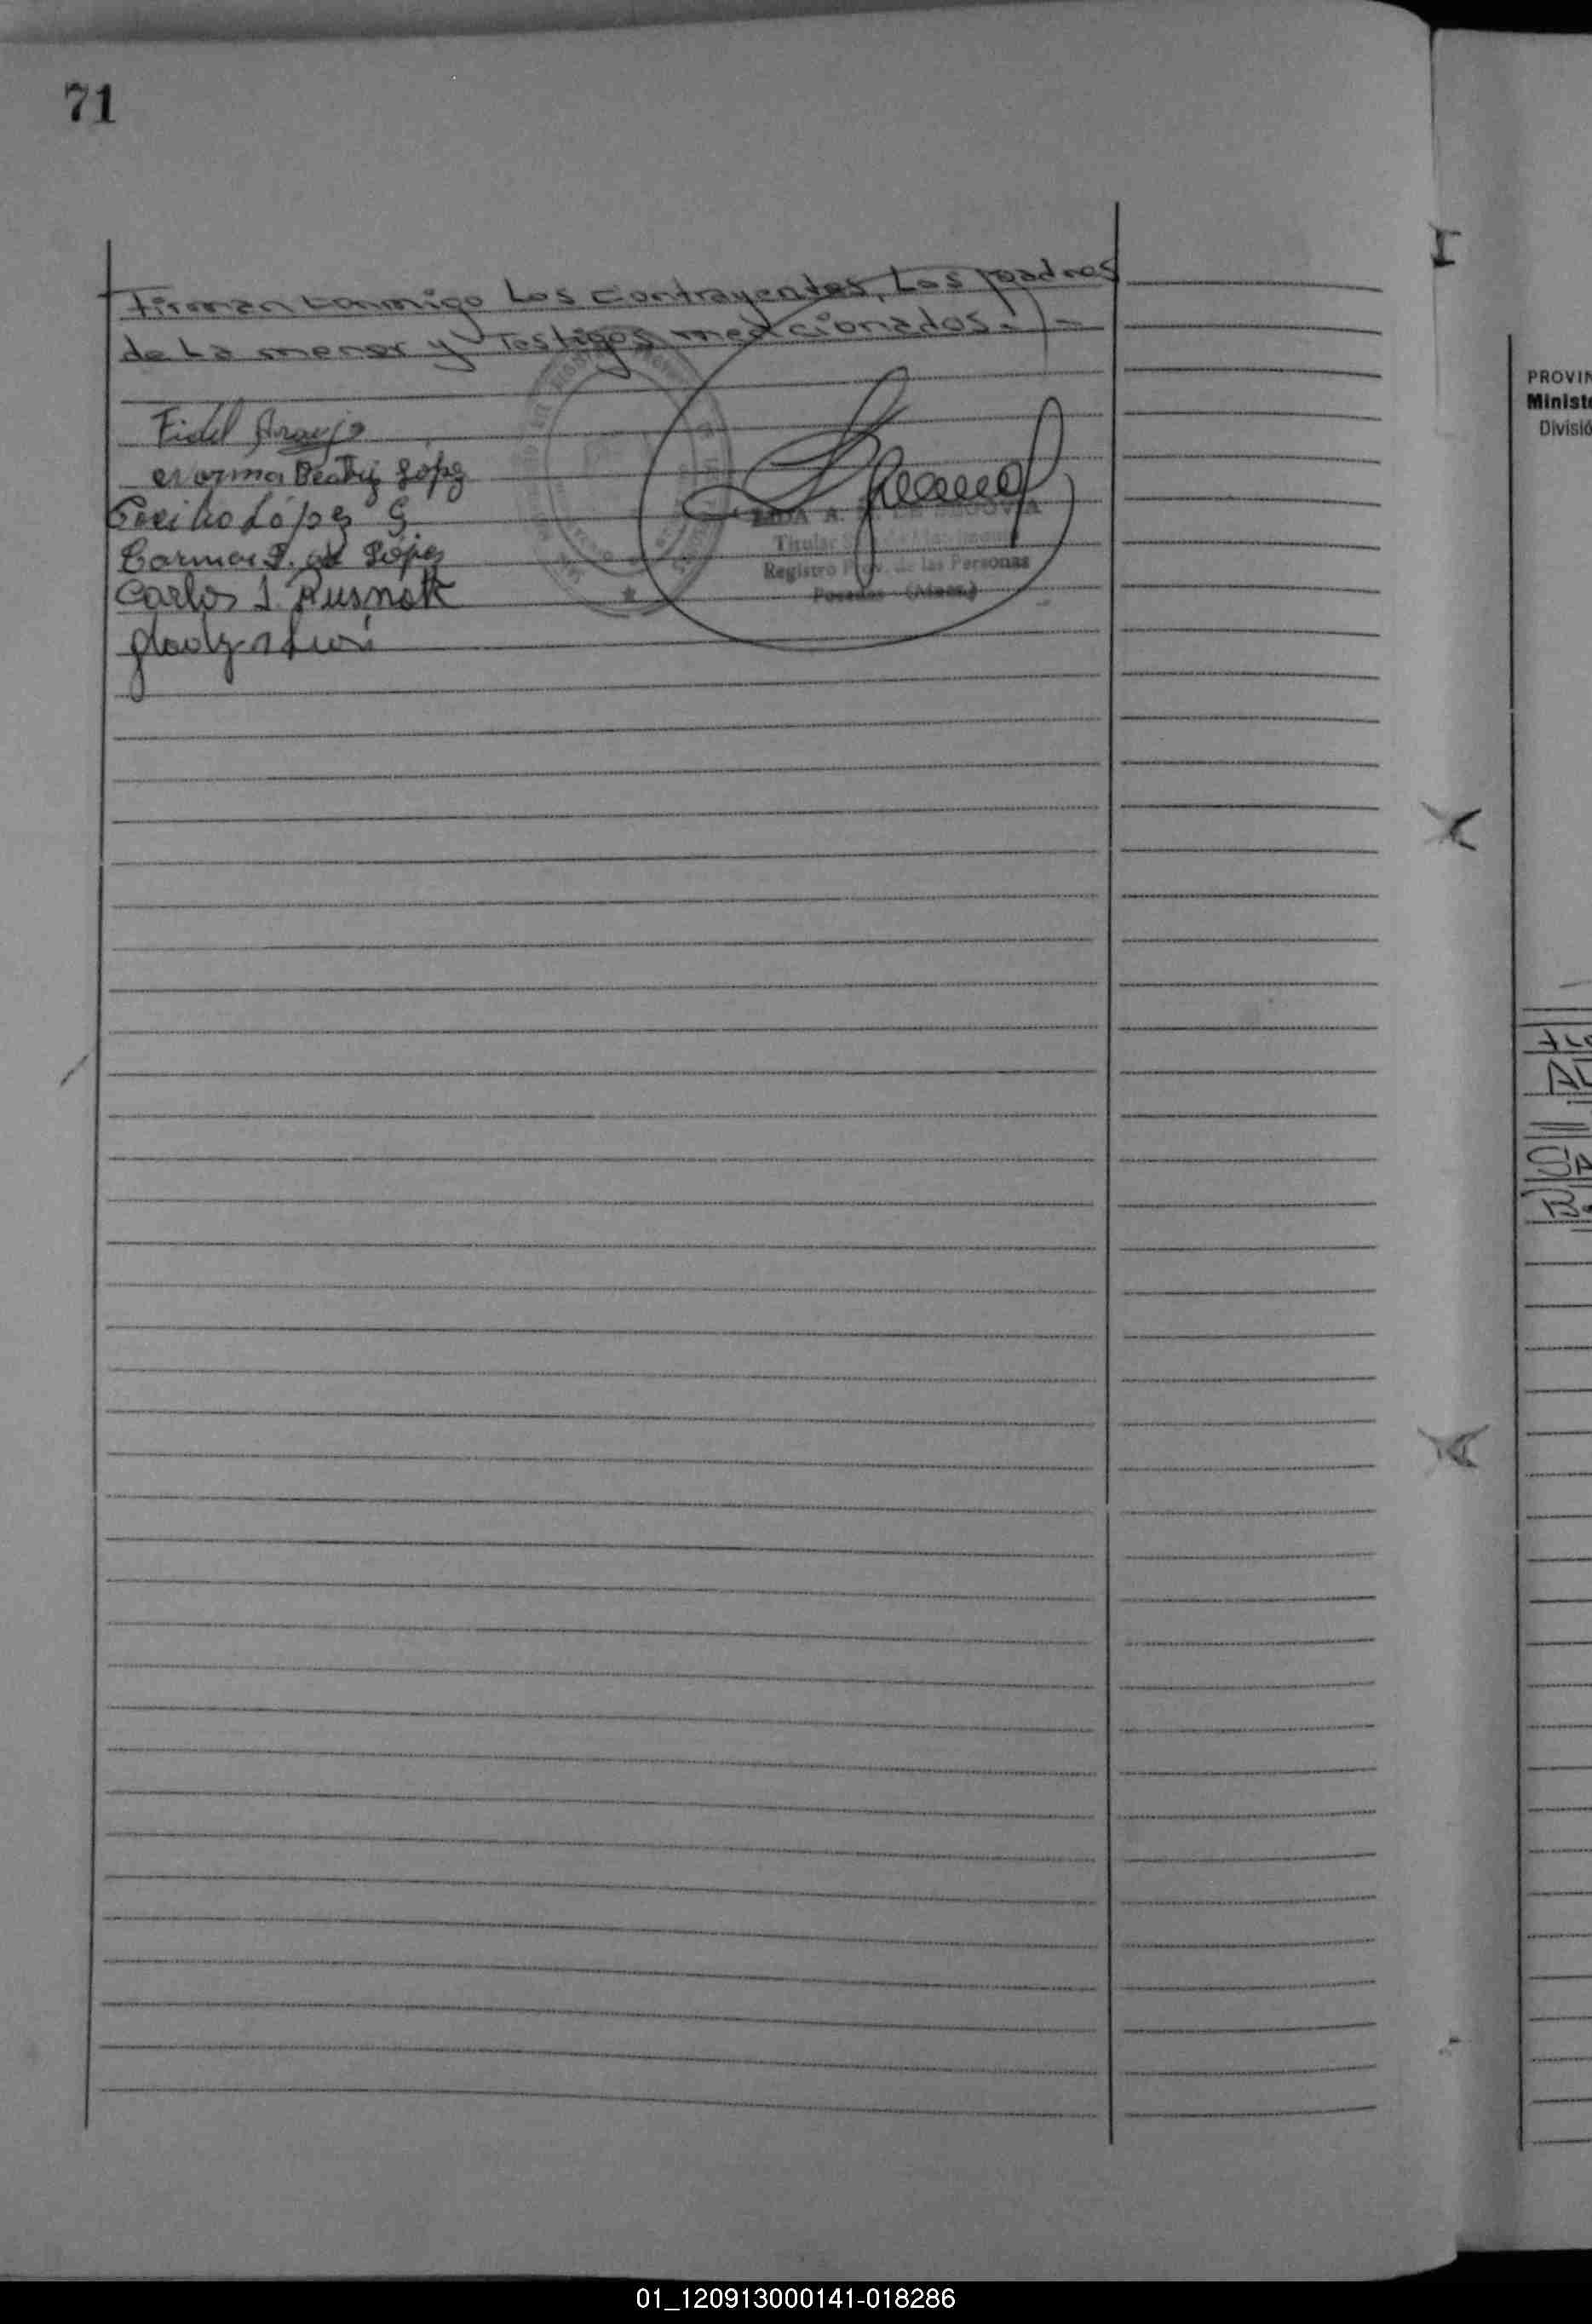 71
Firman conmigo Los contrayentes, Los padres
de La menor y Testigos mencionados.) =
Fidel Araujo
Norma Beatriz López
López G
Carmen P. de López
Carlos J. Rusnak
A. DE SEGOVIA
Titular
Registro Prov. de las Personas
Posadas (Mnes.)
PROVIN
Ministe
Divisió
01_120913000141-018286